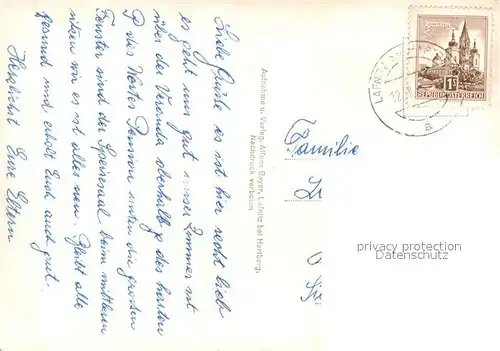 Liebe Guste es ist hier recht lieb
es geht uns gut unser Zimmer ist
über der Veranda oberhalb des harten
P des Wortes Pension unten die großen
Fenster sind der Speisesaal beim mittleren
sitzen wir es ist alles neu. Bleibt alle
gesund und erholt Euch auch gut.
Herzlichst Eure Eltern
Aufnahme u. Verlag: Alfons Bayer, Lafnitz bei Hartberg.
Nachdruck verboten
LAFNITZ
REPUBLIK ÖSTERREICH
1S
Familie
privacy protection
Datenschutz